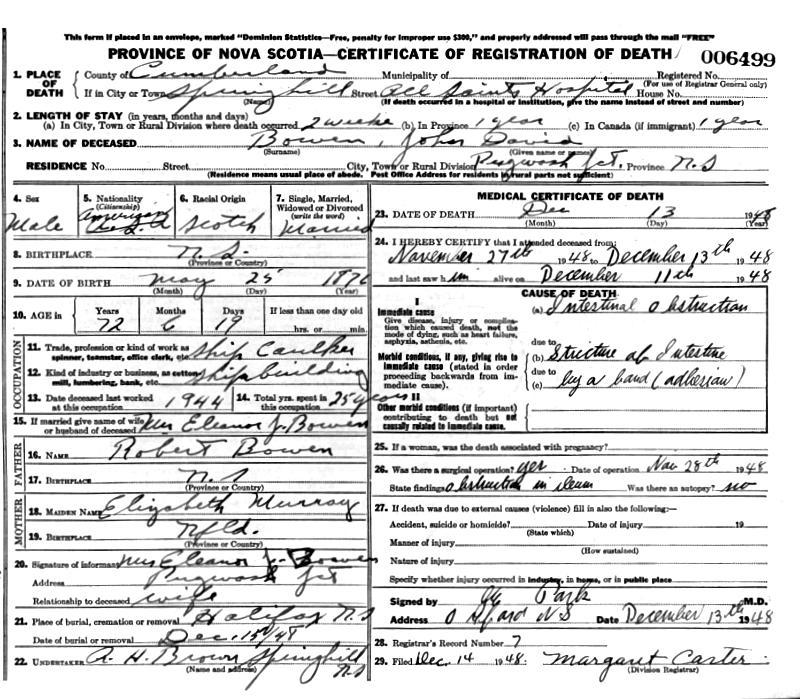 This form if placed in an envelope, marked "Dominion Statistics—Free, penalty for improper use $300," and properly addressed will pass through the mail "FREE"
PROVINCE OF NOVA SCOTIA—CERTIFICATE OF REGISTRATION OF DEATH 006499
1. PLACE OF DEATH County of Cumberland Municipality of Registered No. (For use of Registrar General only)
If in City or Town Springhill (Name) Street All Saints Hospital House No.
(If death occurred in a hospital or institution, give the name instead of street and number)
2. LENGTH OF STAY (in years, months and days)
(a) In City, Town or Rural Division where death occurred 2 weeks (b) In Province 1 year (c) In Canada (if immigrant) 1 year
3. NAME OF DECEASED Bowen, John David
(Surname) (Given name or names)
RESIDENCE No. Street City, Town or Rural Division Pugwash Jct. Province N.S
(Residence means usual place of abode. Post Office Address for residents in rural parts not sufficient)
4. Sex Male
5. Nationality (Citizenship) American
6. Racial Origin Scotch
7. Single, Married, Widowed or Divorced (write the word) Married
8. BIRTHPLACE N.S.
(Province or Country)
9. DATE OF BIRTH May 25 1876
(Month) (Day) (Year)
10. AGE in Years 72 Months 6 Days 19 If less than one day old hrs. or min.
OCCUPATION
11. Trade, profession or kind of work as spinner, teamster, office clerk, etc. Ship Caulker
12. Kind of industry or business, as cotton mill, lumbering, bank, etc. Shipbuilding
13. Date deceased last worked at this occupation 1944 14. Total yrs. spent in this occupation 25 years
15. If married give name of wife or husband of deceased Mrs Eleanor J. Bowen
FATHER
16. NAME Robert Bowen
17. BIRTHPLACE N.S
(Province or Country)
MOTHER
18. MAIDEN NAME Elizabeth Murray
19. BIRTHPLACE Nfld.
(Province or Country)
20. Signature of informant Mrs Eleanor J. Bowen
Address Pugwash Jct
Relationship to deceased wife
21. Place of burial, cremation or removal Halifax N.S
Date of burial or removal Dec. 15th/48
22. UNDERTAKER A. H. Brown Springhill N.S
(Name and address)
MEDICAL CERTIFICATE OF DEATH
23. DATE OF DEATH Dec 13 1948
(Month) (Day) (Year)
24. I HEREBY CERTIFY that I attended deceased from:
November 27th 1948 to December 13th 1948
and last saw him alive on December 11th 1948
CAUSE OF DEATH
I
Immediate cause
Give disease, injury or complication which caused death, not the mode of dying, such as heart failure, asphyxia, asthenia, etc.
(a) Intestinal Obstruction
due to
Morbid conditions, if any, giving rise to immediate cause (stated in order proceeding backwards from immediate cause).
(b) Stricture of Intestine
due to
(c) by a band (adhesion)
II
Other morbid conditions (if important) contributing to death but not causally related to immediate cause.
25. If a woman, was the death associated with pregnancy?
26. Was there a surgical operation? yes Date of operation Nov 28th 1948
State findings obstruction in ileum Was there an autopsy? no
27. If death was due to external causes (violence) fill in also the following:—
Accident, suicide or homicide? Date of injury 19
(State which)
Manner of injury
(How sustained)
Nature of injury
Specify whether injury occurred in industry, in home, or in public place
Signed by Park M.D.
Address Oxford N S Date December 13th 1948
28. Registrar's Record Number 7
29. Filed Dec. 14 1948. Margaret Carter
(Division Registrar)